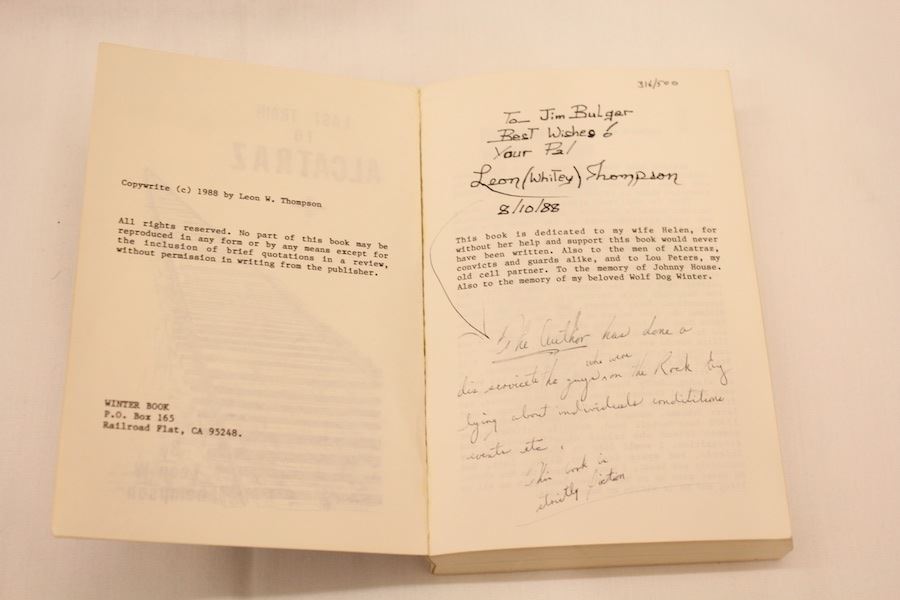 Copywrite (c) 1988 by Leon W. Thompson
All rights reserved. No part of this book may be
reproduced in any form or by any means except for
the inclusion of brief quotations in a review,
without permission in writing from the publisher.
WINTER BOOK
P.O. Box 165
Railroad Flat, CA 95248.
316/500
To Jim Bulger
Best Wishes
Your Pal
Leon (Whitey) Thompson
8/10/88
This book is dedicated to my wife Helen, for
without her help and support this book would never
have been written. Also to the men of Alcatraz,
convicts and guards alike, and to Lou Peters, my
old cell partner. To the memory of Johnny House.
Also to the memory of my beloved Wolf Dog Winter.
The Author has done a
who were
dis service the guys on the Rock by
lying about individuals conditions
events etc.
This work is
strictly fiction